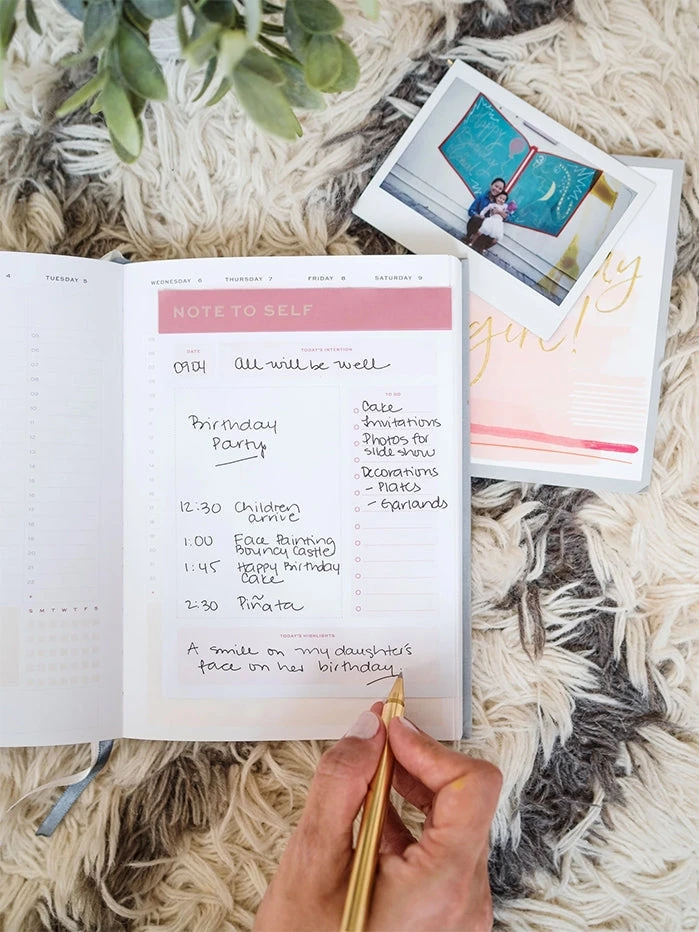 4 TUESDAY 5
WEDNESDAY 6 THURSDAY 7 FRIDAY 8 SATURDAY 9
NOTE TO SELF
DATE
0904
TODAY'S INTENTION
All will be well
Birthday
Party
12:30 Children
arrive
1:00 Face Painting
Bouncy Castle
1:45 Happy Birthday
Cake
2:30 Piñata
TO DO
Cake
Invitations
Photos for
slide show
Decorations
- Plates
- Garlands
TODAY'S HIGHLIGHTS
A smile on my daughter's
face on her birthday.
S M T W T F S
Happy
Birthday
girl!